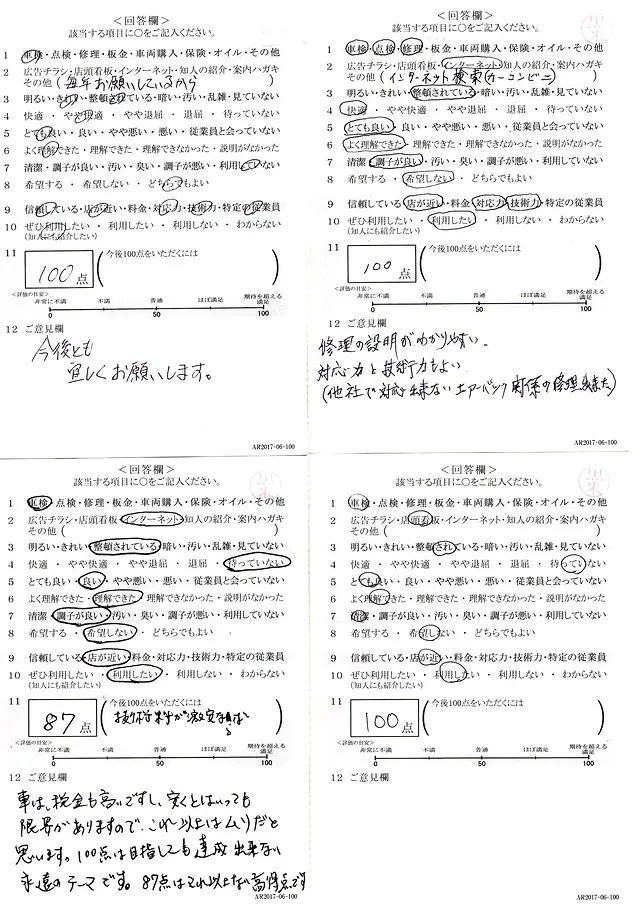 <回答欄>
該当する項目に〇をご記入ください。
1 車検・点検・修理・板金・車両購入・保険・オイル・その他
2 広告チラシ・店頭看板・インターネット・知人の紹介・案内ハガキ
その他(毎年お願いしているから)
3 明るい・きれい・整頓されている・暗い・汚い・乱雑・見ていない
4 快適 ・ やや快適 ・ やや退屈 ・ 退屈 ・ 待っていない
5 とても良い・良い・やや悪い・悪い・従業員と会っていない
6 よく理解できた・理解できた・理解できなかった・説明がなかった
7 清潔・調子が良い・汚い・臭い・調子が悪い・利用していない
8 希望する ・ 希望しない ・ どちらでもよい
9 信頼している・店が近い・料金・対応力・技術力・特定の従業員
10 ぜひ利用したい ・ 利用したい ・ 利用しない ・ わからない
(知人にも紹介したい)
11 100点 (今後100点をいただくには )
<評価の目安>
非常に不満 不満 普通 ほぼ満足 期待を超える満足
0 50 100
12 ご意見欄
今後とも
宜しくお願いします。
AR2017-06-100
<回答欄>
該当する項目に〇をご記入ください。
1 車検・点検・修理・板金・車両購入・保険・オイル・その他
2 広告チラシ・店頭看板・インターネット・知人の紹介・案内ハガキ
その他(インターネット検索(カーコンビニ)
3 明るい・きれい・整頓されている・暗い・汚い・乱雑・見ていない
4 快適 ・ やや快適 ・ やや退屈 ・ 退屈 ・ 待っていない
5 とても良い・良い・やや悪い・悪い・従業員と会っていない
6 よく理解できた・理解できた・理解できなかった・説明がなかった
7 清潔・調子が良い・汚い・臭い・調子が悪い・利用していない
8 希望する ・ 希望しない ・ どちらでもよい
9 信頼している・店が近い・料金・対応力・技術力・特定の従業員
10 ぜひ利用したい ・ 利用したい ・ 利用しない ・ わからない
(知人にも紹介したい)
11 100点 (今後100点をいただくには )
<評価の目安>
非常に不満 不満 普通 ほぼ満足 期待を超える満足
0 50 100
12 ご意見欄
修理の説明がわかりやすい。
対応力と技術力もよい
(他社で対応出来ないエアーバック関係の修理出来た)
AR2017-06-100
<回答欄>
該当する項目に〇をご記入ください。
1 車検・点検・修理・板金・車両購入・保険・オイル・その他
2 広告チラシ・店頭看板・インターネット・知人の紹介・案内ハガキ
その他( )
3 明るい・きれい・整頓されている・暗い・汚い・乱雑・見ていない
4 快適 ・ やや快適 ・ やや退屈 ・ 退屈 ・ 待っていない
5 とても良い・良い・やや悪い・悪い・従業員と会っていない
6 よく理解できた・理解できた・理解できなかった・説明がなかった
7 清潔・調子が良い・汚い・臭い・調子が悪い・利用していない
8 希望する ・ 希望しない ・ どちらでもよい
9 信頼している・店が近い・料金・対応力・技術力・特定の従業員
10 ぜひ利用したい ・ 利用したい ・ 利用しない ・ わからない
(知人にも紹介したい)
11 87点 (今後100点をいただくには
<評価の目安>
非常に不満 不満 普通 ほぼ満足 期待を超える満足
0 50 100
12 ご意見欄
車は、税金も高いですし、安くとはいっても
限界がありますので、これ以上はムリだと
思います。100点は目指しても達成出来ない
永遠のテーマです。87点はこれ以上ない高得点です
AR2017-06-100
<回答欄>
該当する項目に〇をご記入ください。
1 車検・点検・修理・板金・車両購入・保険・オイル・その他
2 広告チラシ・店頭看板・インターネット・知人の紹介・案内ハガキ
その他( )
3 明るい・きれい・整頓されている・暗い・汚い・乱雑・見ていない
4 快適 ・ やや快適 ・ やや退屈 ・ 退屈 ・ 待っていない
5 とても良い・良い・やや悪い・悪い・従業員と会っていない
6 よく理解できた・理解できた・理解できなかった・説明がなかった
7 清潔・調子が良い・汚い・臭い・調子が悪い・利用していない
8 希望する ・ 希望しない ・ どちらでもよい
9 信頼している・店が近い・料金・対応力・技術力・特定の従業員
10 ぜひ利用したい ・ 利用したい ・ 利用しない ・ わからない
(知人にも紹介したい)
11 100点 (今後100点をいただくには )
<評価の目安>
非常に不満 不満 普通 ほぼ満足 期待を超える満足
0 50 100
12 ご意見欄
AR2017-06-100